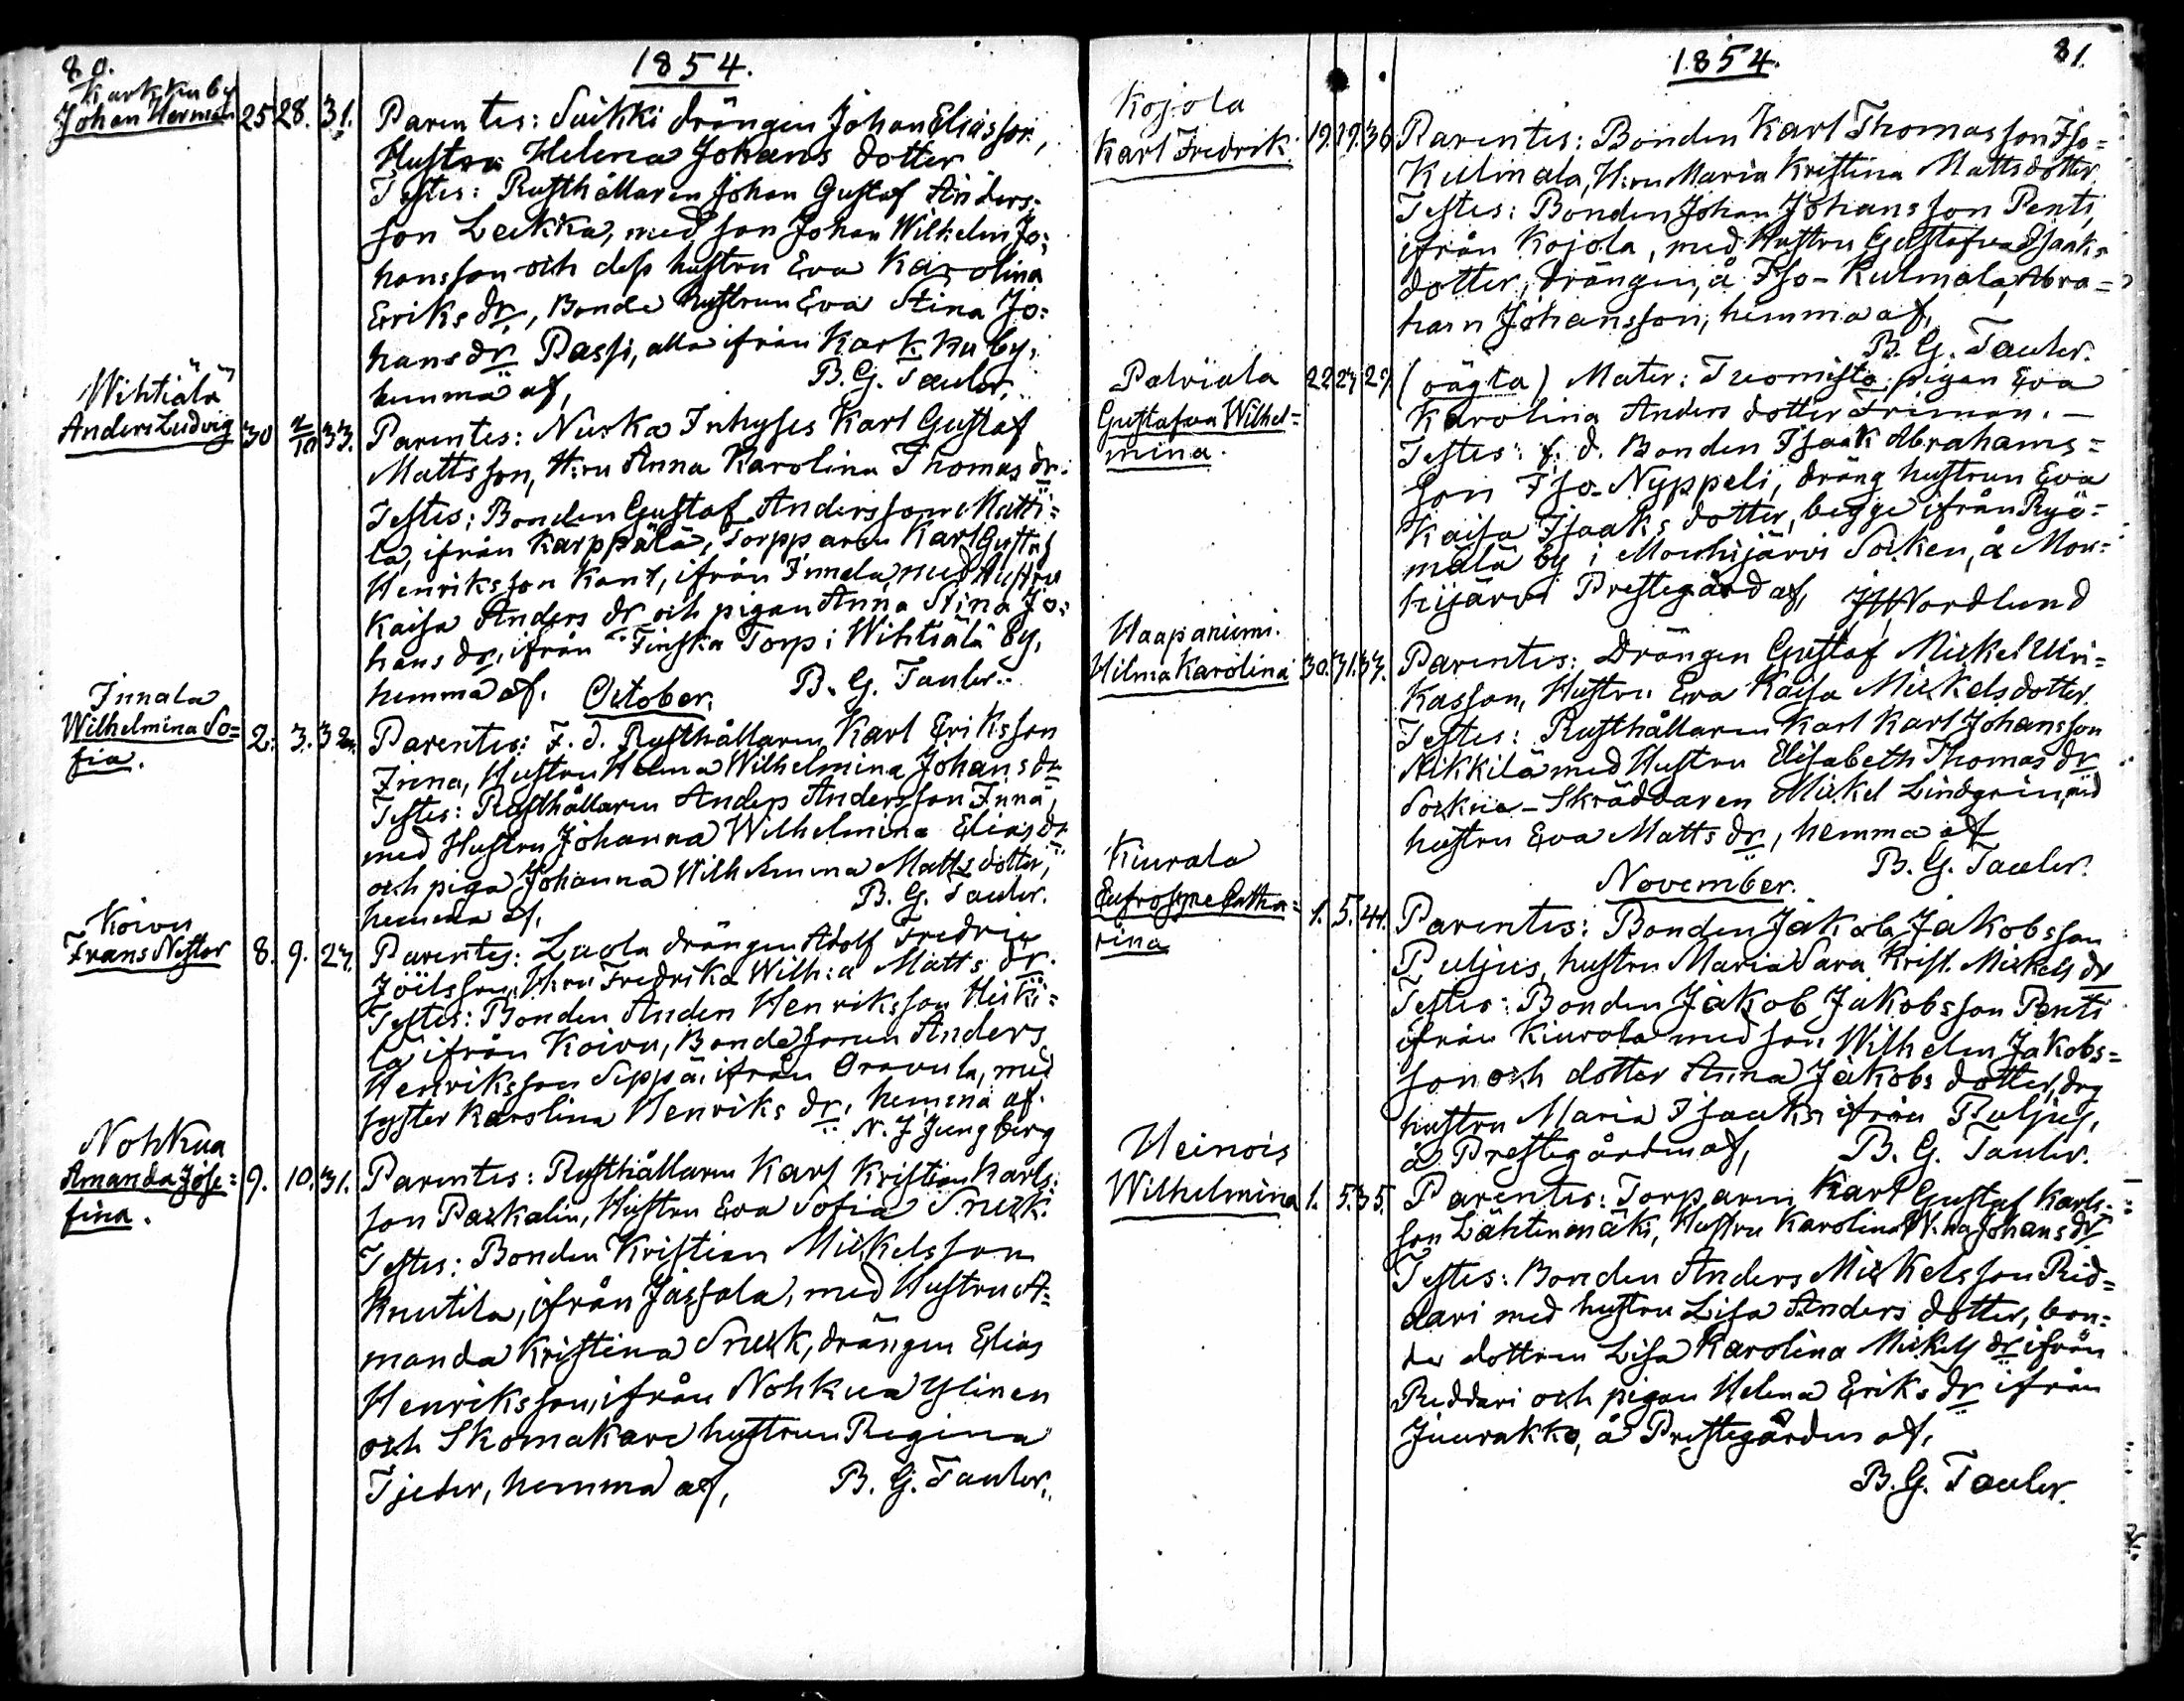 80.
1854.
Karkkuby
Johan Herman 25 28. 31.
Parentes: Suikki drängen Johan Eliasson,
Hustru Helena Johans dotter
Testes: Rusthållaren Johan Gustaf Anders=
son Leikka, med son Johan Wilhelm Jo=
hansson och dess hustru Eva Karolina
Eriks dr, Bonde hustrun Eva Stina Jo=
hans dr Passi, alla ifrån Karkku by,
hemma af, B. G. Tauler.
Wihtiälä
Anders Ludvig 30 2/10 33.
Parentes: Nuska Inhyses Karl Gustaf
Mattsson, H:ru Anna Karolina Thomas dr.
Testes: Bonden Gustaf Andersson Matti=
la, ifrån Karppälä, Torpparen Karl Gustaf
Henriksson Kant, ifrån Innala, med Hustru
Kaisa Anders dr och pigan Anna Stina Jo=
hans dr, ifrån Finska Torp i Wihtiälä by,
hemma af. B. G. Tauler.
October.
Innala
Wilhelmina So=
fia. 2. 3. 32.
Parentes: F. d. Rusthållaren Karl Eriksson
Inna, Hustru Helena Wilhelmina Johans dr
Testes: Rusthållaren Anders Andersson Inna,
med Hustru Johanna Wilhelmina Elias dr
och piga Johanna Wilhelmina Matts dotter,
hemma af. B. G. Tauler.
Koivu
Frans Nestor 8. 9. 27.
Parentes: Luola drängen Adolf Fredric
Joëlsson, H:ru Fredrika Wilh:a Matts dr.
Testes: Bonden Anders Henriksson Heiki=
lä ifrån Koivu, Bondesonen Anders
Henriksson Seppä, ifrån Oravula, med
syster Karolina Henriks dr, hemma af.
N. J. Jungberg
Nohkua
Amanda Jose=
fina. 9. 10. 31.
Parentes: Rusthållaren Karl Kristian Karls=
son Paskalin, Hustru Eva Sofia Snek.
Testes: Bonden Kristian Mickelsson
Knutila, ifrån Jassala, med Hustru A=
manda Kristina Snek, drängen Elias
Henriksson, ifrån Nohkua Ylinen
och Skomakare hustrun Regina
Tjeder, hemma af, B. G. Tauler.
1854. 81.
Kojola
Karl Fredrik. 19. 19. 36
Parentes: Bonden Karl Thomasson Iso=
Kulmala, H:ru Maria Kristina Matts dotter
Testes: Bonden Johan Johansson Penti,
ifrån Kojola, med Hustru Gustafva Isaaks
dotter, drängen, å Iso-Kulmala, Abra=
ham Johansson, hemma af,
B. G. Tauler.
Palviala
Gustafva Wilhel=
mina. 22 24 29
(oägta) Mater: Tuomisto pigan Eva
Karolina Anders dotter Friman. —
Testes: f. d. Bonden Isaak Abrahams=
son Iso-Nyppeli, dräng hustrun Eva
Kaisa Isaaks dotter, begge ifrån Ryö=
mälä by i Mouhijärvi Socken, å Mou=
hijärvi Prestegård af, Nordlund
Haapaniemi.
Hilma Karolina 30. 31. 37.
Parentes: Drängen Gustaf Mickel Uri=
kasson, Hustru Eva Kaisa Mickelsdotter.
Testes: Rusthållaren Karl Karl Johansson
Nikkilä med Hustru Elisabeth Thomas dr
Sockne-Skräddaren Mickel Lindgrén, med
hustru Eva Matts dr, hemma af
B. G. Tauler.
November.
Kiurala
Eufrosyne Catha=
rina 1. 5. 44.
Parentes: Bonden Jakob Jakobsson
Puljus, hustru Maria Sara Krist. Mickels dr
Testes: Bonden Jakob Jakobsson Penti
ifrån Kiurola med son Wilhelm Jakobs=
son och dotter Anna Jakobs dotter, drg
hustru Maria Isaaks ifrån Puljus,
å Prestegården af, B. G. Tauler.
Heinois
Wilhelmina 1. 5. 35.
Parentes: Torparen Karl Gustaf Karls=
son Lähtenmäki, Hustru Karolina W:na Johans dr
Testes: Bonden Anders Mickelsson Rid=
dari med hustru Lisa Anders dotter, bon=
de dottren Lisa Karolina Mickels dr ifrån
Riddari och pigan Helena Eriks dr ifrån
Juurakko, å Prestegården af,
B. G. Tauler.